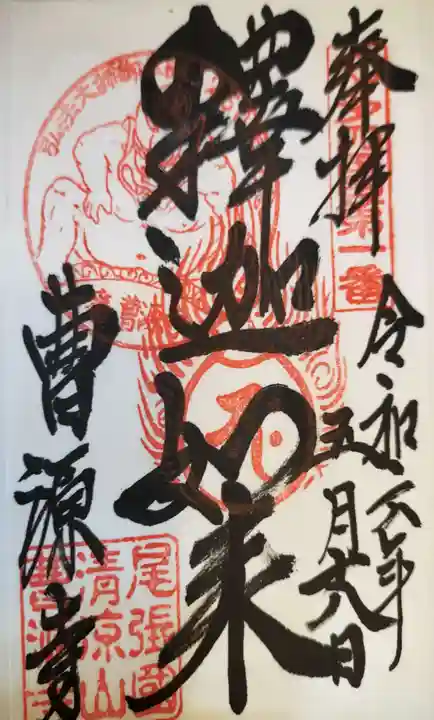 奉拝
第一番
令和六年
五月
日
釋迦如来
弘法大師
曹源寺
尾張國
清凉山
曹源寺